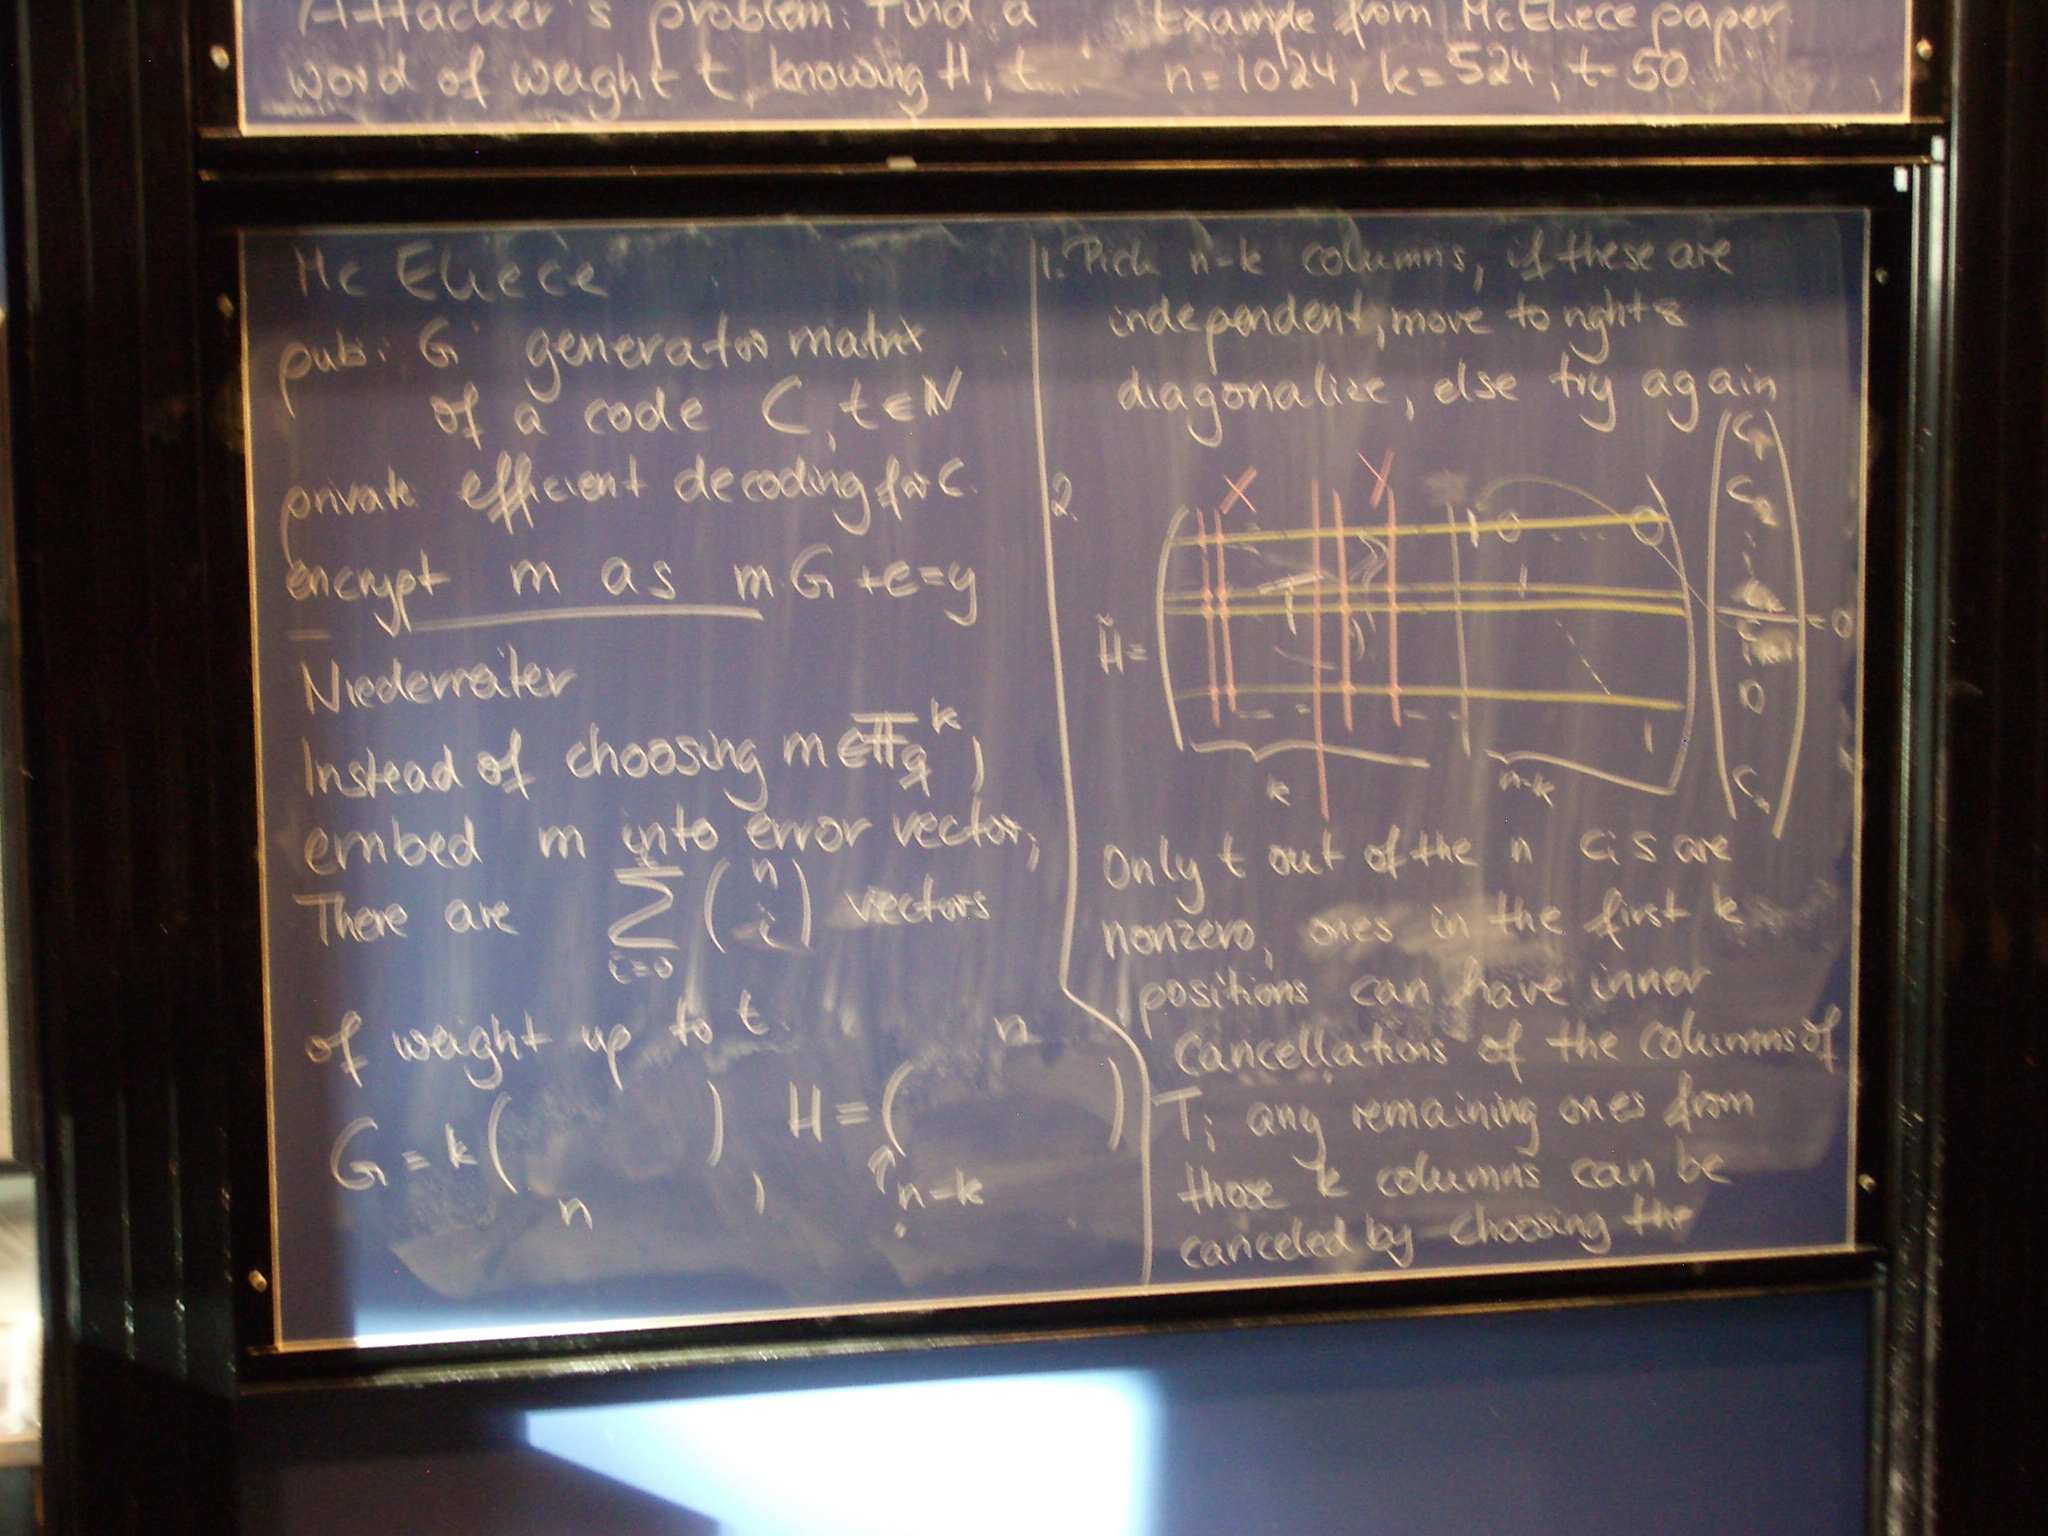 Attacker's problem: Find a
word of weight t, knowing H, t.
Example from McEliece paper.
n=1024, k=524, t=50.
Mc Eliece
pub: G generator matrix
of a code C, t∈N
private efficient decoding for C.
encrypt m as mG+e=y
Niederreiter
Instead of choosing m∈F_q^k,
embed m into error vector,
There are ∑_{i=0}^{t} (n i) vectors
of weight up to t.
G = k( ) n , H = ( ) n n-k
1. Pick n-k columns, if these are
independent, move to right &
diagonalize, else try again
2.
X Y
1 0 .... 0
T 1
H̃ = = 0
1
k n-k
C1
C2
0
Cn
Only t out of the n ci's are
nonzero, ones in the first k
positions can have inner
cancellations of the columns of
T; any remaining ones from
those k columns can be
canceled by choosing the